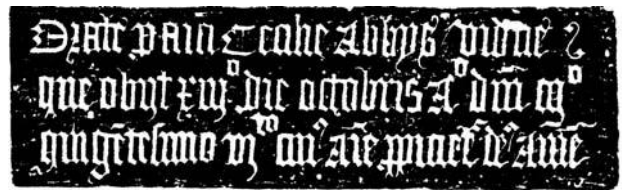 Orate p aīa Cecilie Abbys vidue
que obijt xiij° die octobris A° dni m°
quingētesimo vj^to cui' aīe ppiciet' de' amē